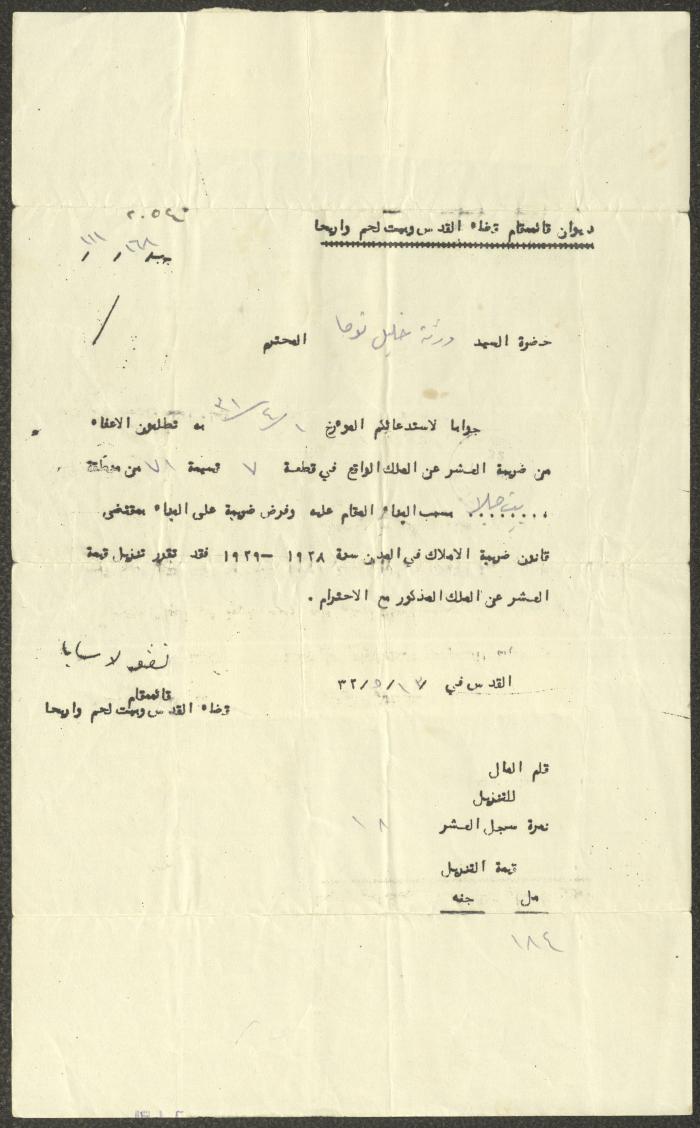 ٢٠٥٤٠
ديوان قائمقام قضاء القدس وبيت لحم واريحا
حضرة السيد ورثة خليل المحترم
جوابا لاستدعائكم المؤرخ ١/٤/٣١ به تطلبون الاعفاء
من ضريبة العشر عن الملك الواقع في قطعة ٧ قسيمة ٧١ من منطقة
بيت جالا ........ بسبب البناء المقام عليه وفرض ضريبة على البناء بمقتضى
قانون ضريبة الاملاك في المدن سنة ١٩٢٨ - ١٩٢٩ فقد تقرر تنزيل قيمة
العشر عن الملك المذكور مع الاحترام .
القدس في ١٣/٥/٣٢
قائمقام
قضاء القدس وبيت لحم واريحا
قلم المال
للتنزيل
نمرة سجل العشر ١٨
قيمة التنزيل
مل جنه
١٨٤